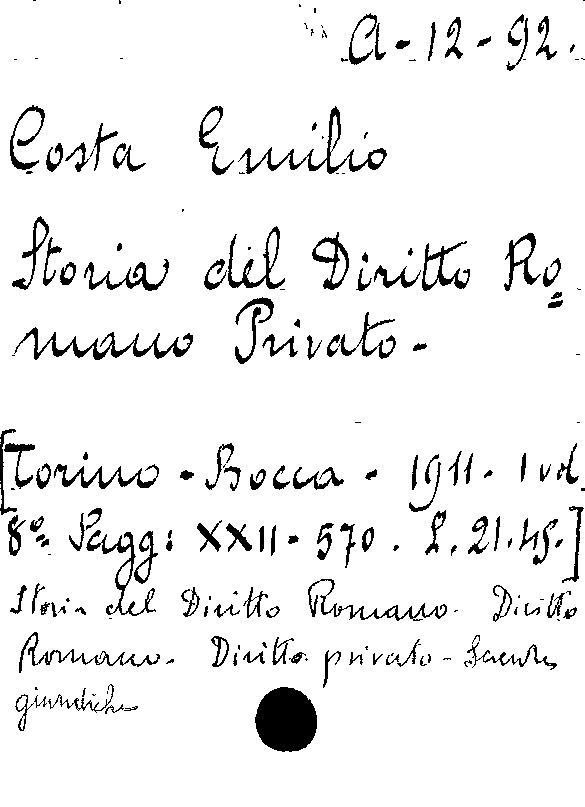 A-12-92.
Costa Emilio
Storia del Diritto Ro=
mano Privato -
[Torino - Bocca - 1911. 1 vol.
8º. Pagg: XXII - 570. L. 21.45.]
Storia del Diritto Romano. Diritto
Romano. Diritto privato - Scienze
giuridiche